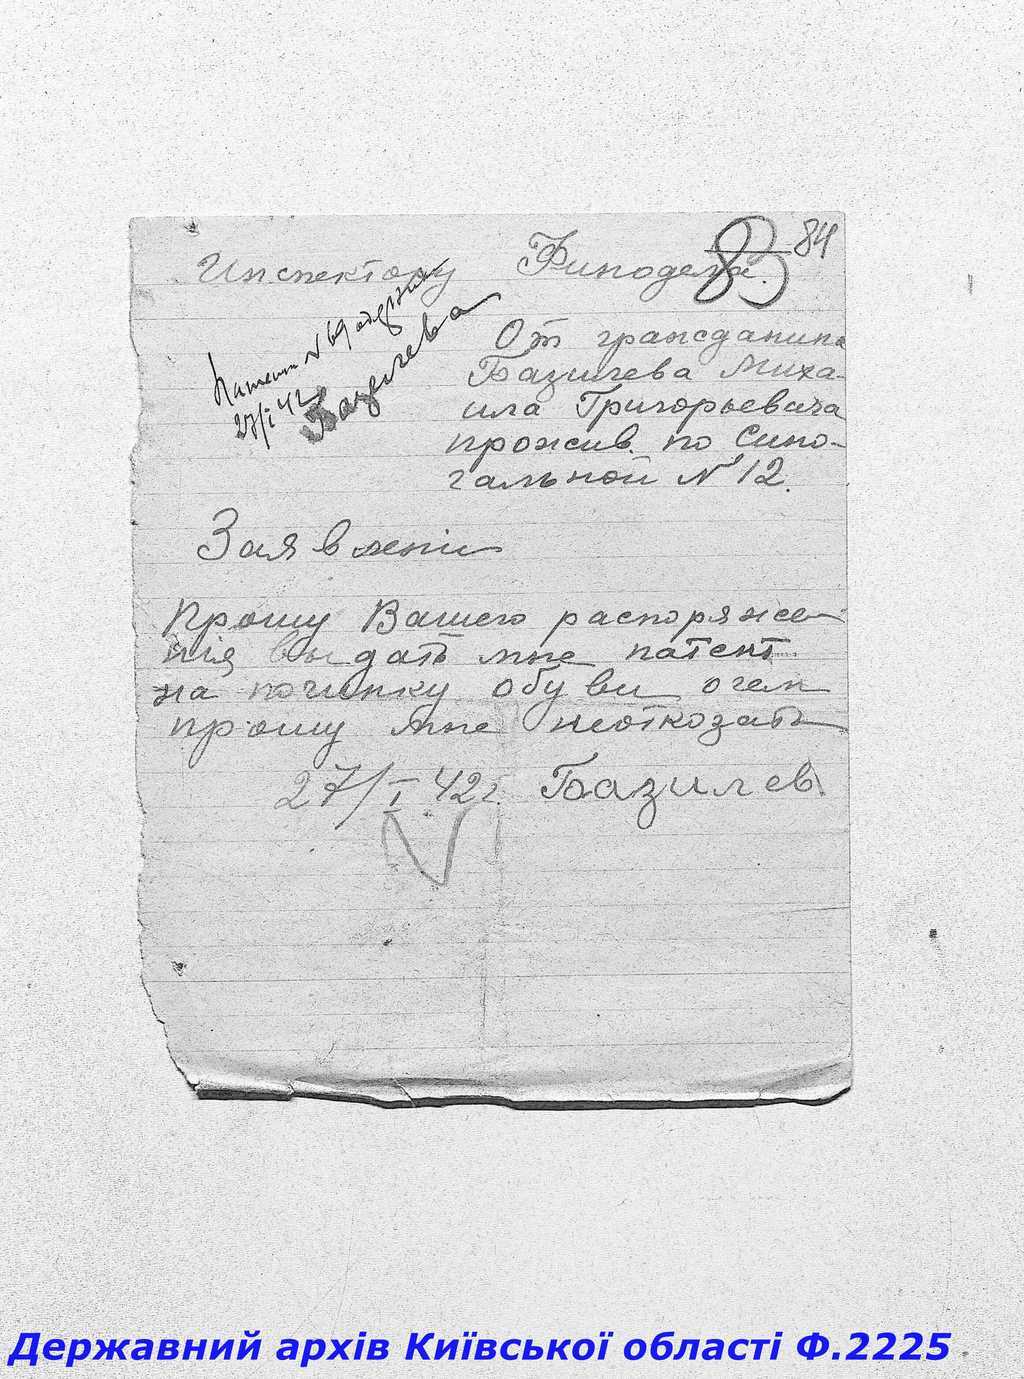 83 84
Инспектору Финодела.
Патент N 69 одержала
27/I 42 Базилева
От гражданина
Базилева Миха-
ила Григорьевича
прожив. по Сино-
гальной N 12.
Заявлени
Прошу Вашего распоряже-
нія выдать мне патент
на починку обуви очем
прошу мне неоткозать
27/I 42 г. Базилев.
Державний архів Київської області Ф.2225